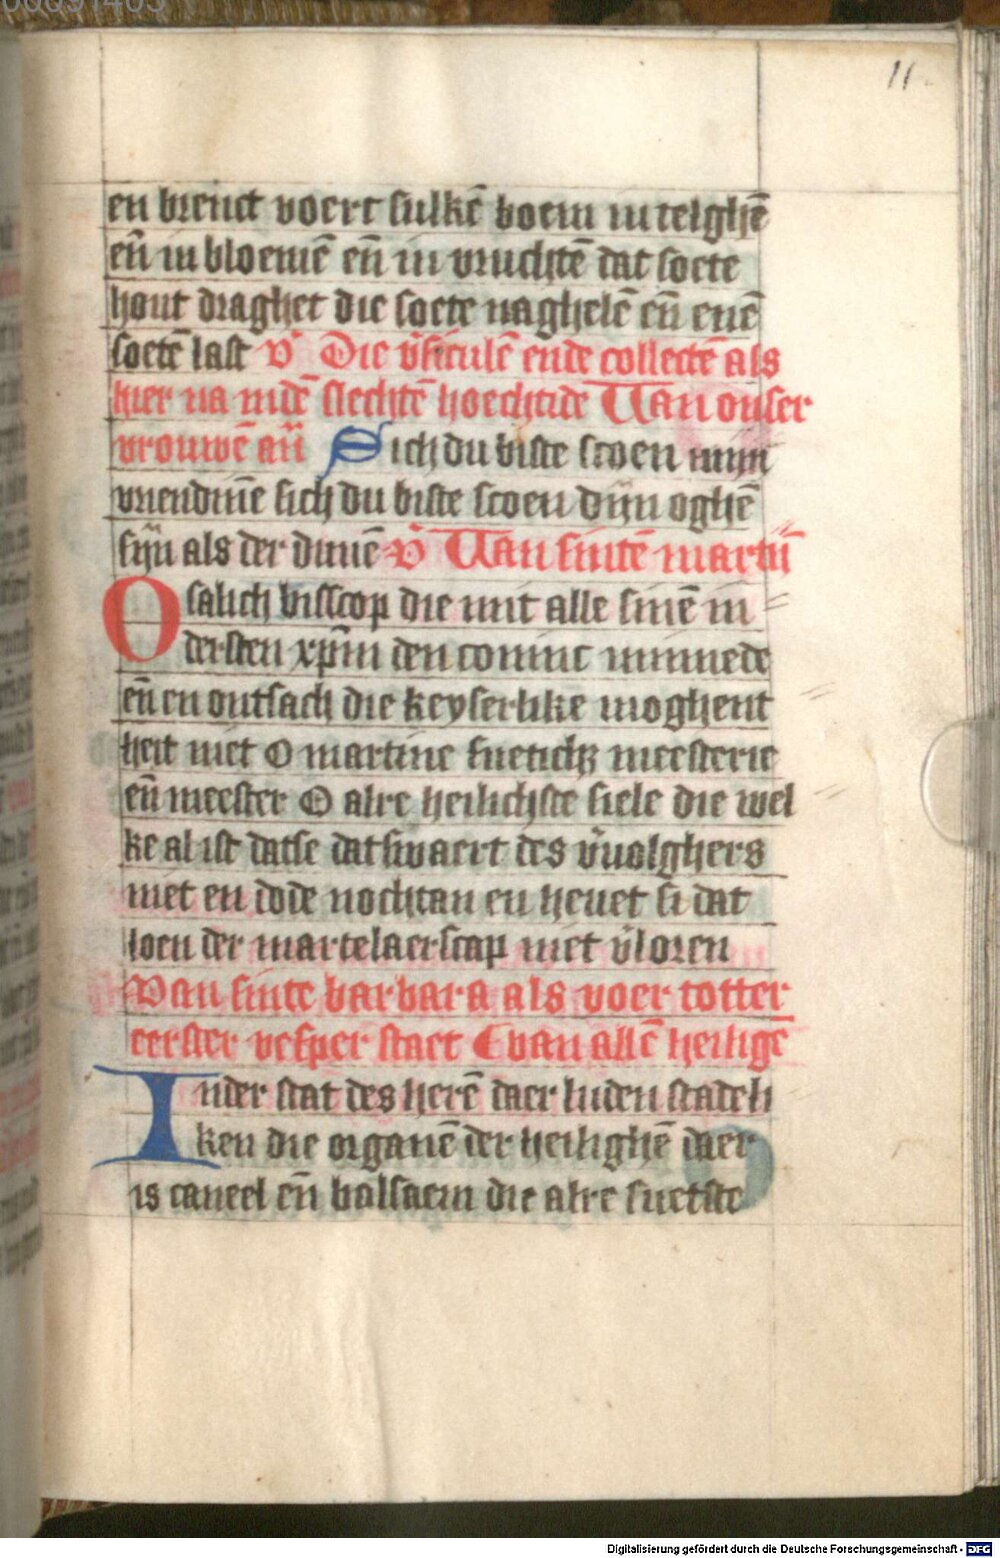 11.
en brenct voert sulkē boem in telghē
eñ in bloemē eñ in vruchtē dat soete
hout draghet die soete naghelē eñ enē
soetē last v̉ Die v̉siculē ende collectē als
hier na indē slechtē hoechtide Uan onser
vrouwē añ Sich du biste scoen mijn
vriendinē sich du biste scoen dijn oghē
sijn als der duuē v̉ Uan sintē martij̄
O salich bisscop die mit alle sinē in
dersten xp̄m den coninc minnede
eñ en ontsach die keyserlike moghent
heit niet O martine
eñ meester O alre heilichste siele die wel
ke al ist datse dat swaert des v̉uolghers
niet en dode nochtan en heuet si dat
loen der martelaerscap niet v̉loren
Van sinte barbara als voer totter
eerster vesper staet Euan allē heiligē
In der stat des herē daer luden stadeli
ken die organē der heilighē daer
is caneel eñ balsaem die alre suetste
Digitalisierung gefördert durch die Deutsche Forschungsgemeinschaft - DFG